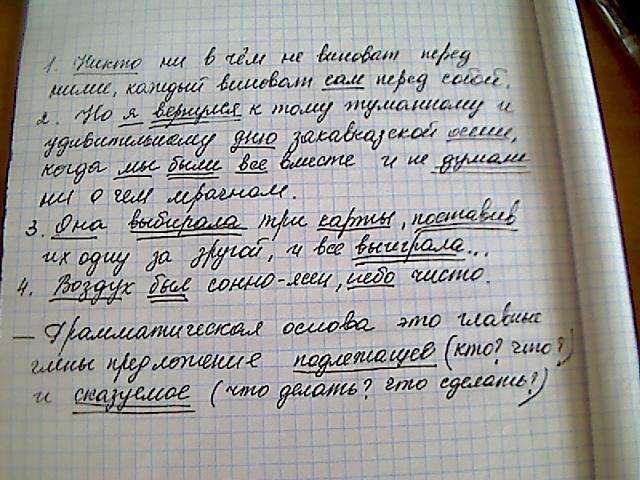 1. Никто ни в чём не виноват перед
ними, каждый виноват сам перед собой.
2. Но я вернулся к тому туманному и
удивительному дню закавказской осени,
когда мы были все вместе и не думали
ни о чем мрачном.
3. Она выбирала три карты, поставив
их одну за другой, и все выиграла...
4. Воздух был сонно-ясен, небо чисто.
— Грамматическая основа это главные
члены предложение подлежащев (кто? что?)
и сказуемое (что делать? что сделать?)